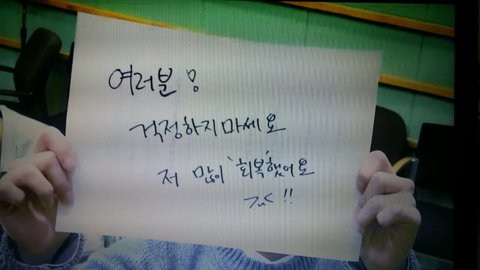 여러분!
걱정하지마세요
저 많이 '회복'했어요
!!